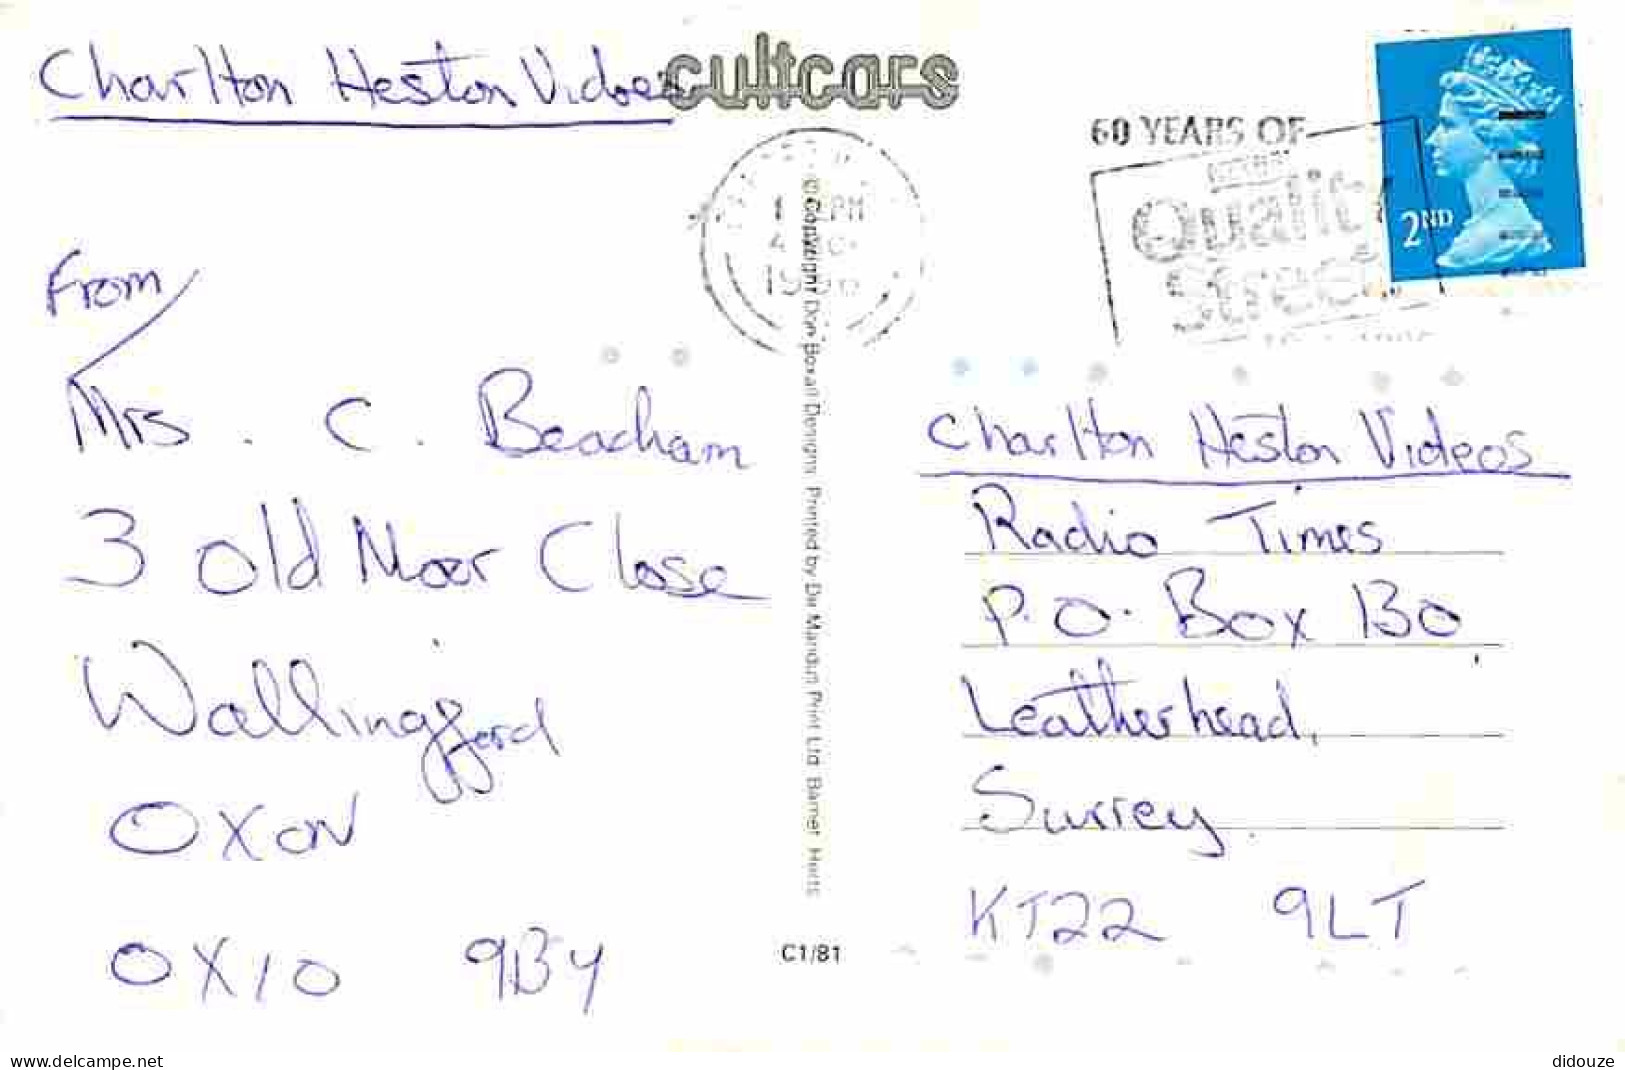 Charlton Heston Vidoes
cultcars
60 YEARS OF
2ND
PM
From
Mrs. C. Beacham
3 Old Moor Close
Wallingford
OXON
OX10 9BY
© Copyright Don Boxall Designs. Printed by Dix Mandun Print Ltd. Barnet Herts
C1/81
Charlton Heston Videos
Radio Times
P.O. Box 130
Leatherhead,
Surrey.
KT22 9LT
www.delcampe.net
didouze